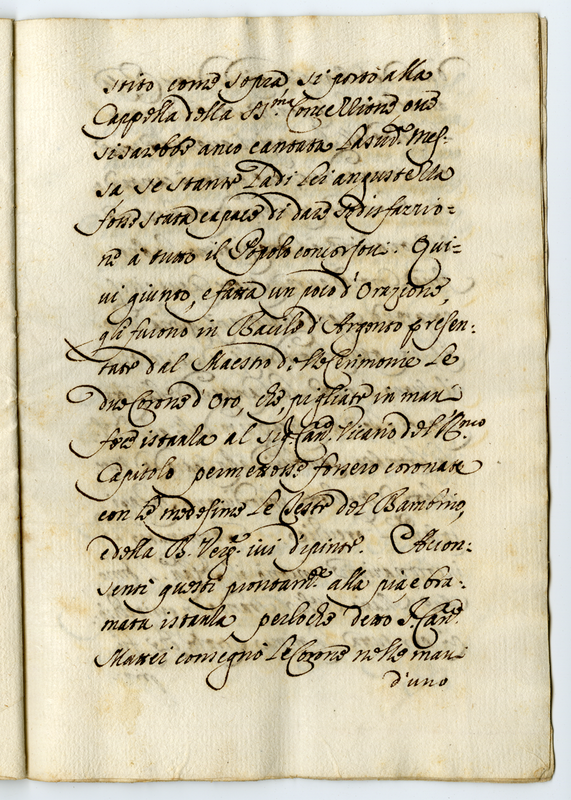 stito come sopra si portò alla
Cappella della SS.ma Concezzione, ove
si sarebbe anco cantata la sud.a Mes-
sa se stante la di lei angustezza
fosse stata capace di dare sodisfazzio=
ne a tutto il Popolo concorsovi. Qui=
vi giunto, e fatta un poco d'Orazione,
gli furono in Bacile d'Argento presen=
tate dal Maestro delle Cerimonie le
due Corone d'Oro, che pigliate in mano
fece istanza al Sig. Can. Vicario del R.mo
Capitolo permettesse fossero coronate
con le medesime le Teste del Bambino,
e della B. Verg.e ivi dipinte. Accon=
sentì questi prontam.te alla pia e bra=
mata istanza perloche detto S. Can.
Mattei consegnò le Corone nelle mani
d'uno